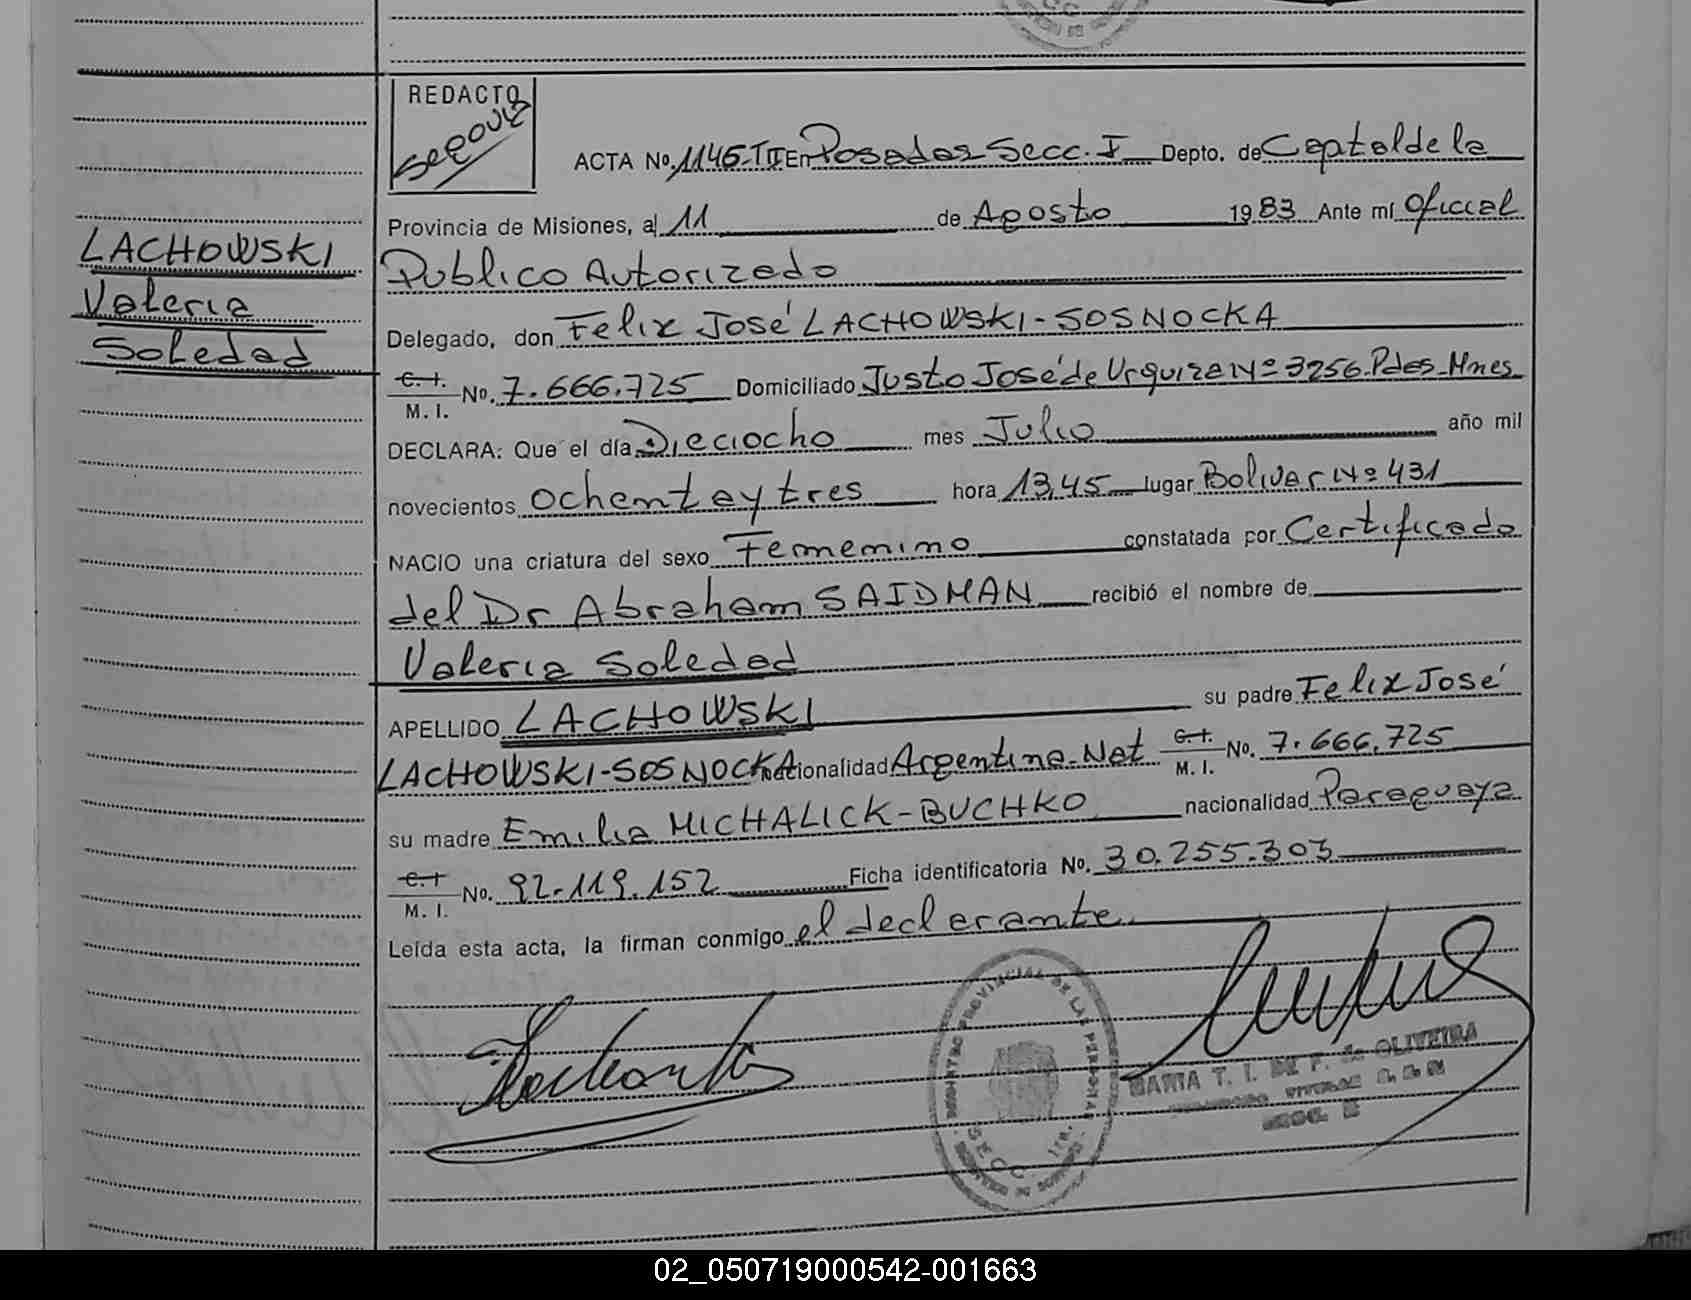 REDACTO
ACTA No. 1146-TII En Posadas Secc. I Depto. de Capital de la
Provincia de Misiones, a 11 de Agosto 1983 Ante mí Oficial
Publico Autorizado
LACHOWSKI
Valeria
Soledad
Delegado, don Felix José LACHOWSKI-SOSNOCKA
C.I.
M.I. No. 7.666.725 Domiciliado Justo José de Urquiza Nº 3256-Pdas-Mnes
DECLARA: Que el día Dieciocho mes Julio año mil
novecientos ochenta y tres hora 13,45 lugar Bolivar Nº 431
NACIO una criatura del sexo Femenino constatada por Certificado
del Dr Abraham SAIDMAN recibió el nombre de
Valeria Soledad
APELLIDO LACHOWSKI su padre Felix José
LACHOWSKI-SOSNOCKA nacionalidad Argentina-Nat C.I. M.I. No. 7.666.725
su madre Emilia MICHALICK-BUCHKO nacionalidad Paraguaya
C.I
M.I. No. 92.119.152 Ficha identificatoria No. 30.255.303
Leída esta acta, la firman conmigo el declarante.
SECC
MARIA T. I. DE F. de OLIVEIRA
02_050719000542-001663